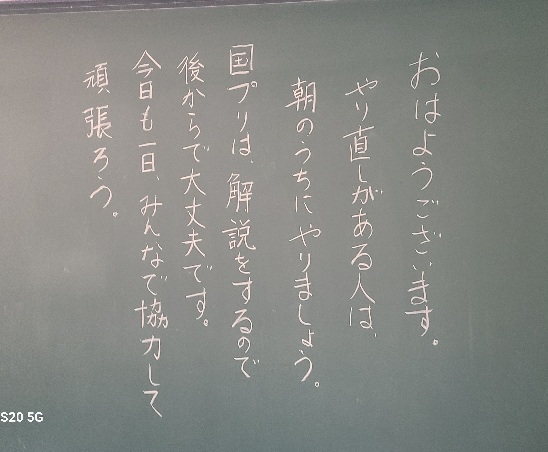 おはようございます。
やり直しがある人は、
朝のうちにやりましょう。
国プリは、解説をするので
後からで大丈夫です。
今日も一日、みんなで協力して
頑張ろう。
S20 5G